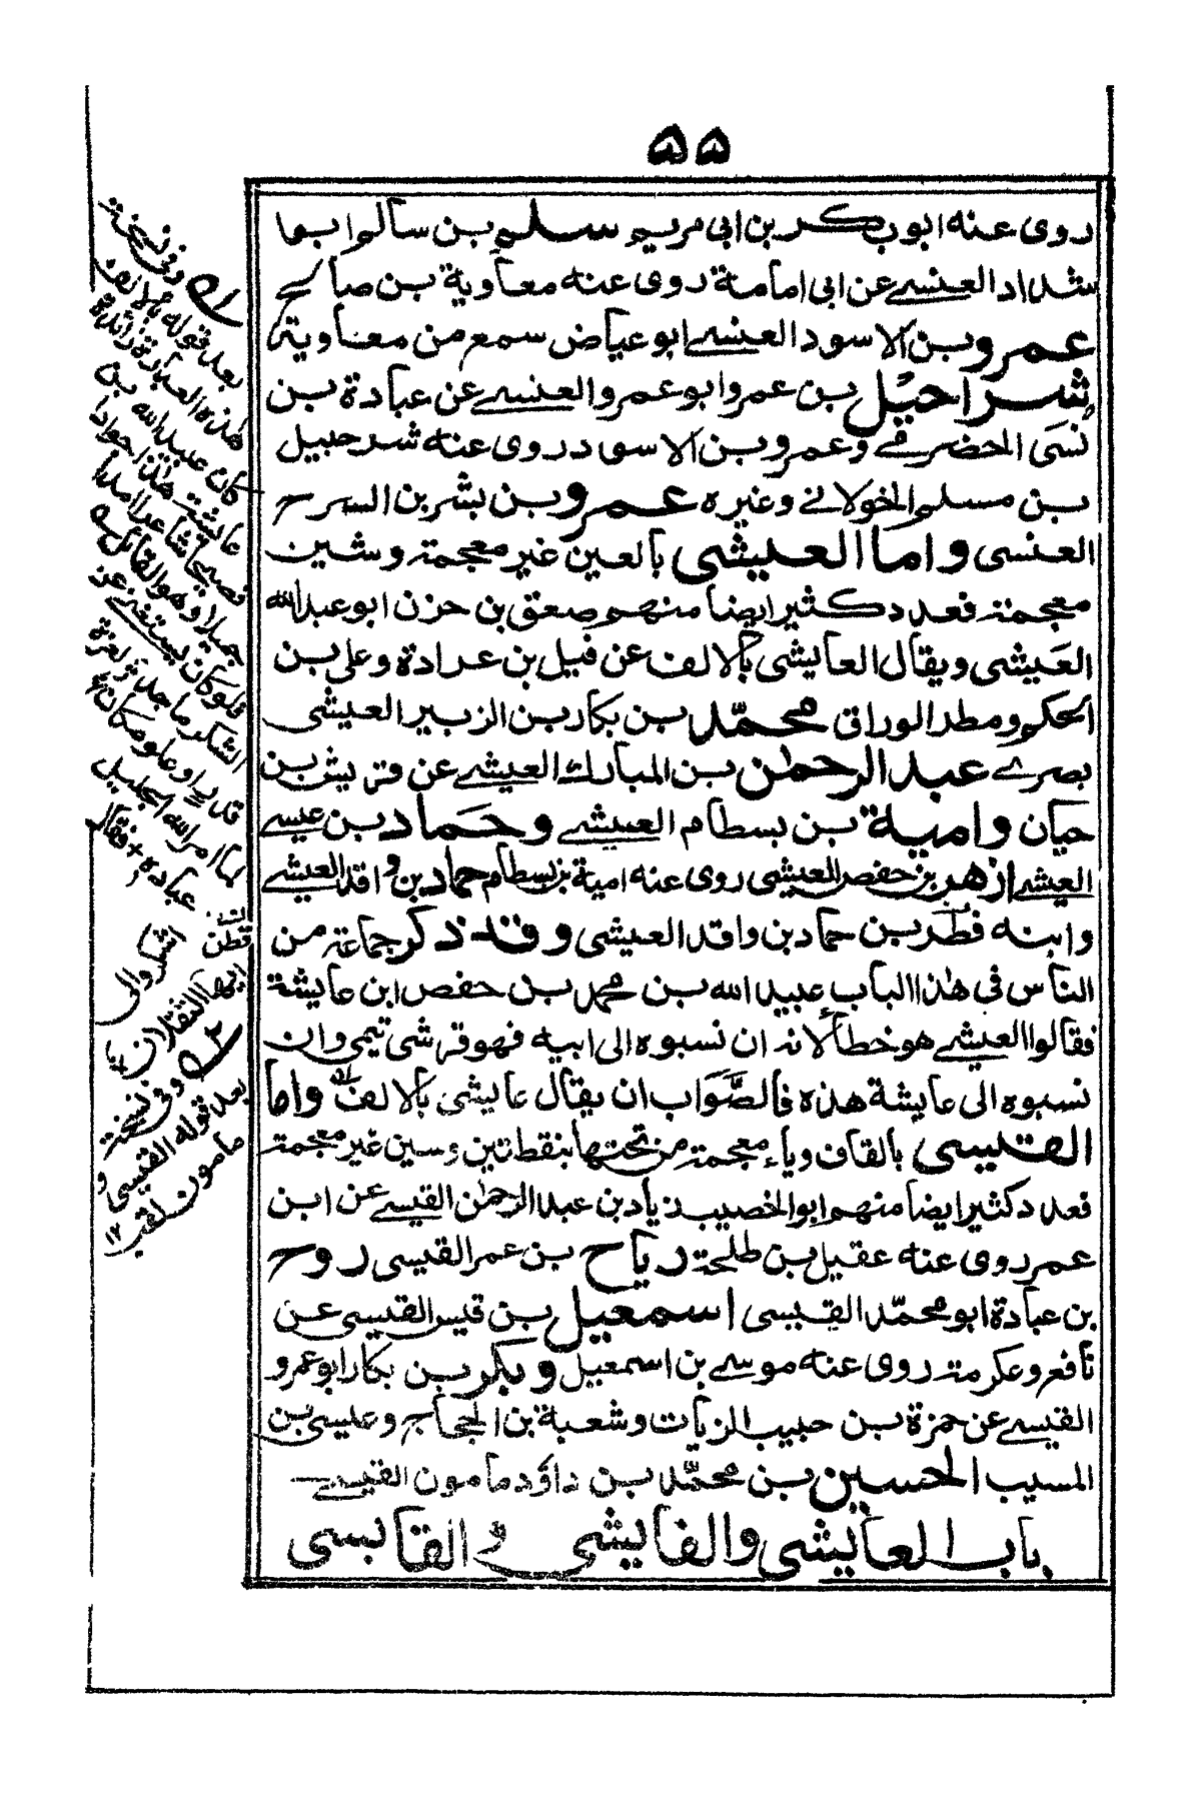 ٥٥
روى عنه ابوبكر بن ابى مريم سلم بن سالم ابو
شداد العنسے عن ابى امامة روى عنه معاوية بن صالح
عمرو بن الاسود العنسے ابو عياض سمع من معاوية
شراحيل بن عمرو ابو عمرو العنسے عن عبادة بن
نسى الحضرمے وعمرو بن الاسود روى عنه شرحبيل
بن مسلم الخولانے وغيره عمرو بن بشر بن السرح
العنسى واما العيشى بالعين غير معجمة وشين
معجمة فعدد كثير ايضا منهم صعق بن حزن ابو عبد الله
العيشى ويقال العايشى بالالف عن فيل بن عرادة وعلى بن
الحكم ومطر الوراق محمّد بن بكار بن الزبير العيشى
بصرے عبد الرحمٰن بن المبارك العيشے عن قريش بن
حيان وامية بن بسطام العيشے وحماد بن عيسے
العيشے ازهر بن حفص العيشى روى عنه امية بن بسطام حماد بن واقد العيشے
وابنه فطر بن حماد بن واقد العيشى وقد ذكر جماعة من
الناس فى هذا الباب عبيد الله بن محمد بن حفص ابن عايشة
فقالوا العيشے هو خطأ لانه ان نسبوه الى ابيه فهو قرشى تيمى وان
نسبوه الى عايشة هذه فالصَّوَاب ان يقال عايشى بالالف واما
القيسى بالقاف وياء معجمة من تحتها بنقطتين وسين غير معجمة
فعدد كثير ايضا منهم ابو الخصيب زياد بن عبد الرحمٰن القيسے عن ابن
عمر روى عنه عقيل بن طلحة رياح بن عمر القيسى روح
بن عبادة ابو محمّد القيسى اسمعيل بن قيس القيسى عن
نافع وعكرمة روى عنه موسے بن اسمعيل وبكر بن بكار ابو عمرو
القيسے عن حمزة بن حبيب الزيات وشعبة بن الحجاج وعيسى بن
المسيب الحسين بن محمّد بن داؤد مامون القيسے
باب العايشى والفايشى و القابسى
وفى نسخة
بعد قوله بالالف
هذه العبارة زائدة
كان عبيد الله بن
عايشة هذا جوادا
فصيحا شاعرا
جميلا وهو القائل
فلو كان يستغنى عن
الشكر ماجد لعزة
قدر او علو مكان
لما امر الله الجليل
عباده فقال
اشكروا لى
ايها الثقلان
قطن
وفى نسخة
بعد قوله القيسى
مامون لقب ١٢